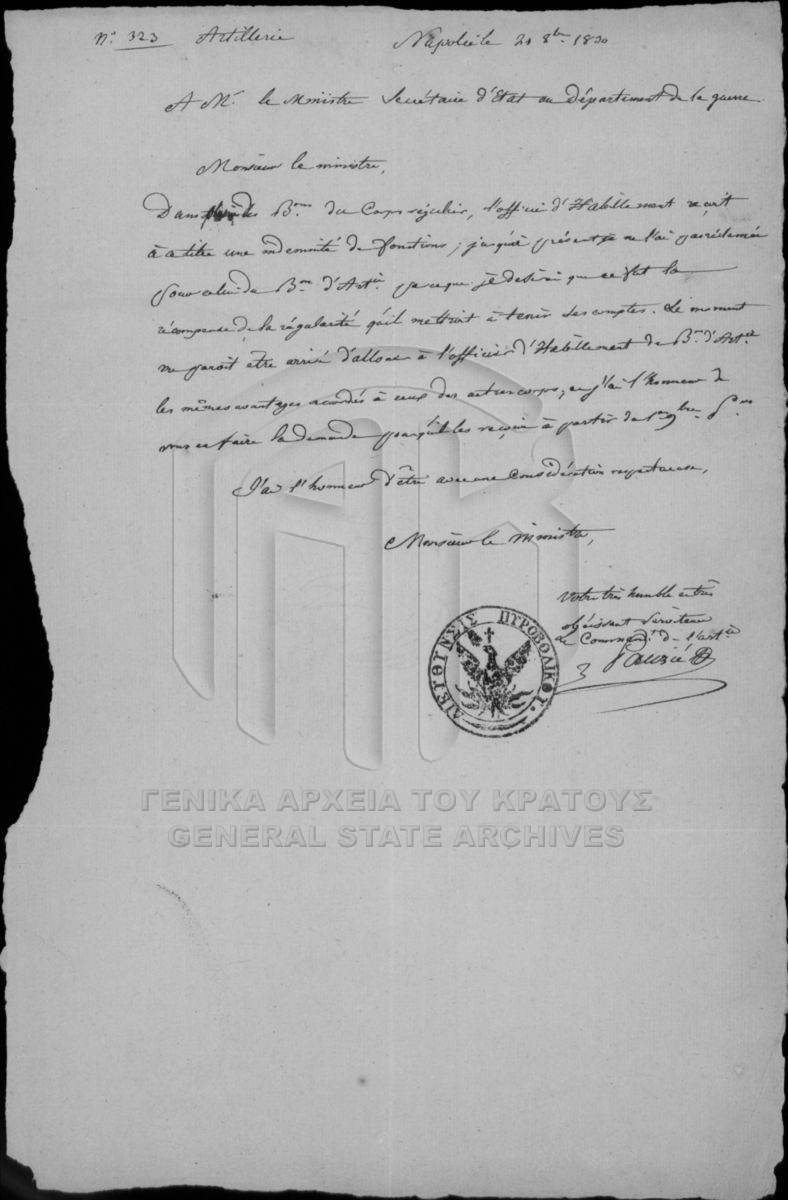 N.° 323 Artillerie Napoli le 21 8bre 1830
A Mr. le Ministre Secrétaire d'Etat au département de la guerre.
Monsieur le ministre,
Dans les Bons du Corps régulier, l'officier d'Habillement reçoit
à ce titre une indemnité de fonctions; jusqu'à présent je ne l'ai pas réclamée
pour celui du Bon d'Artie parceque je désirai que ce fut la
récompense de la régularité qu'il mettroit à tenir ses comptes. Le moment
me paroit être arrivé d'allouer à l'officier d'Habillement du Bon d'Artie
les mêmes avantages accordés à ceux des autres corps, et j'ai l'honneur de
vous en faire la demande pourqu'il les reçoive à partir du 1er 9bre
J'ai l'honneur d'être avec une considération respectueuse,
Monsieur le ministre,
Votre très humble et très
obéissant serviteur
Le Commandt de l'artie
Pauzié
ΔΙΕΥΘΥΝΣΙΣ ΠΥΡΟΒΟΛΙΚΟΥ.
ΓΕΝΙΚΑ ΑΡΧΕΙΑ ΤΟΥ ΚΡΑΤΟΥΣ
GENERAL STATE ARCHIVES